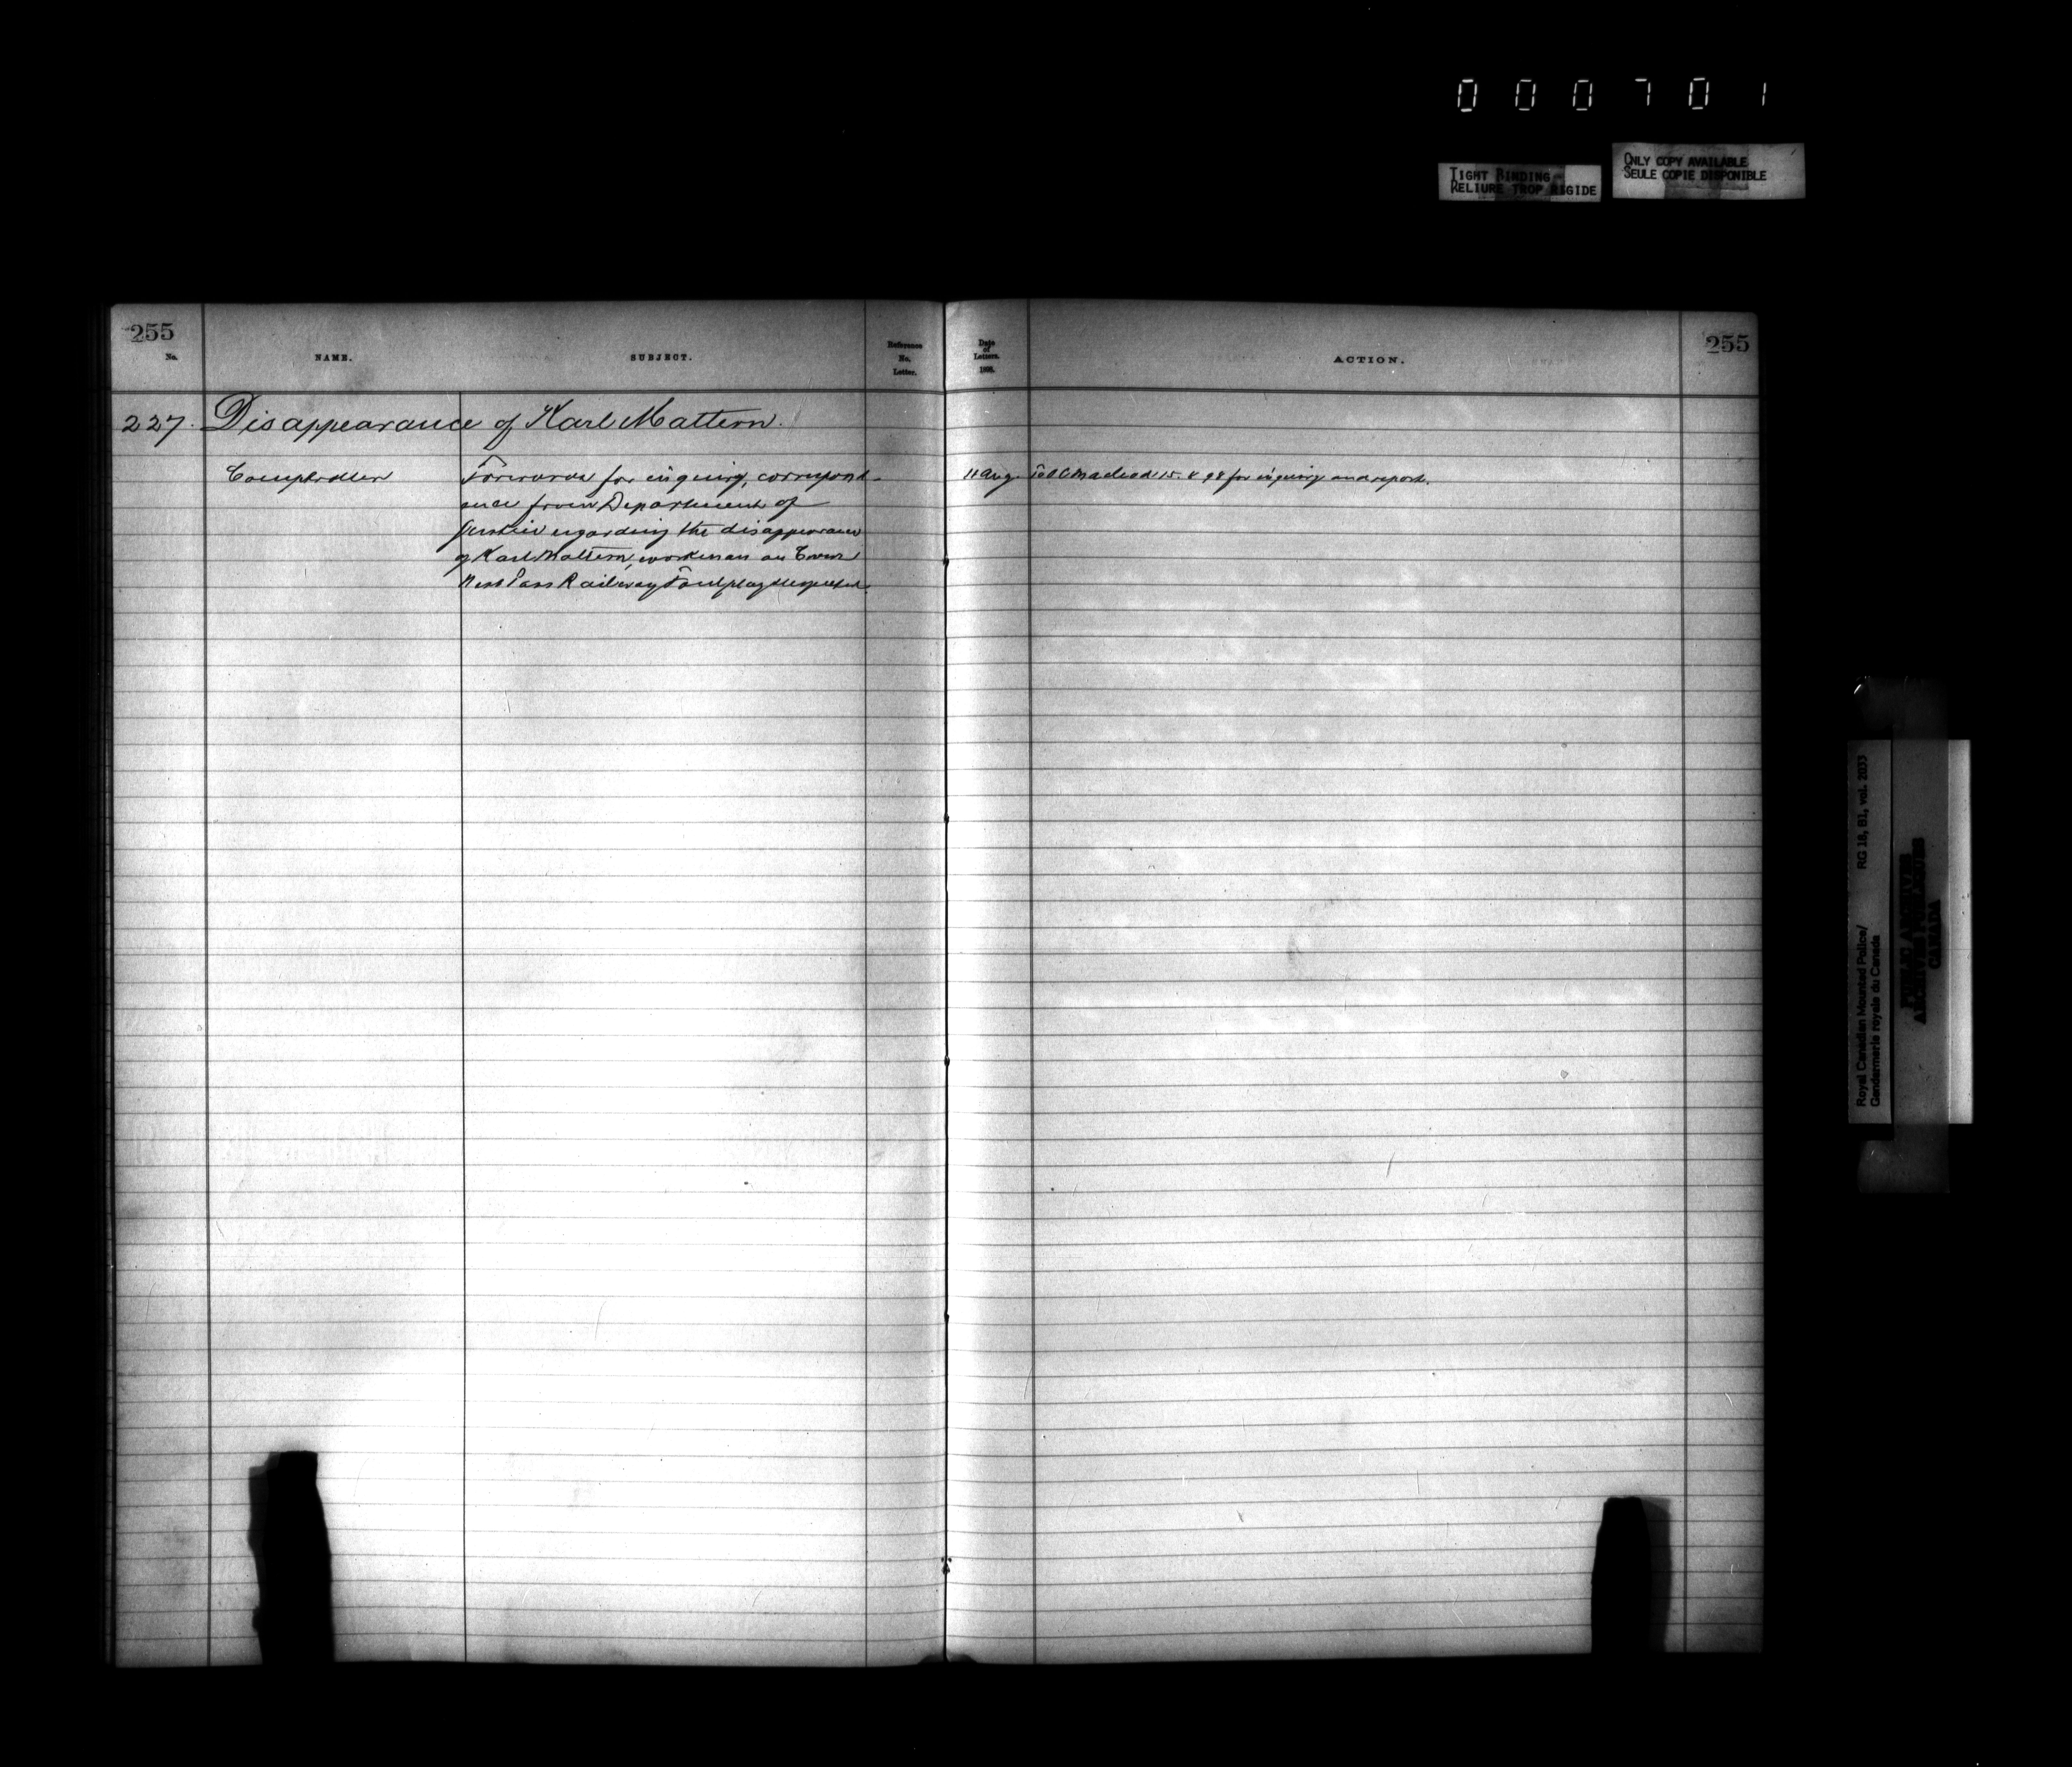 000701
TIGHT BINDING
RELIURE TROP RIGIDE
ONLY COPY AVAILABLE
SEULE COPIE DISPONIBLE
255
No.
NAME.
SUBJECT.
Reference
No.
Letter.
Date
of
Letters.
1898.
ACTION.
255
227. Disappearance of Karl Mattern.
Comptroller
Forwards for inquiry, correspond-
ence from Department of
Justice regarding the disappearance
of Karl Mattern, workman on Crows
Nest Pass Railway Foul play suspected.
11 Aug. To O C Macleod 15. 8 98 for inquiry and report.
Royal Canadian Mounted Police/
Gendarmerie royale du Canada
RG 18, B1, vol. 2033
PUBLIC ARCHIVES
ARCHIVES PUBLIQUES
CANADA